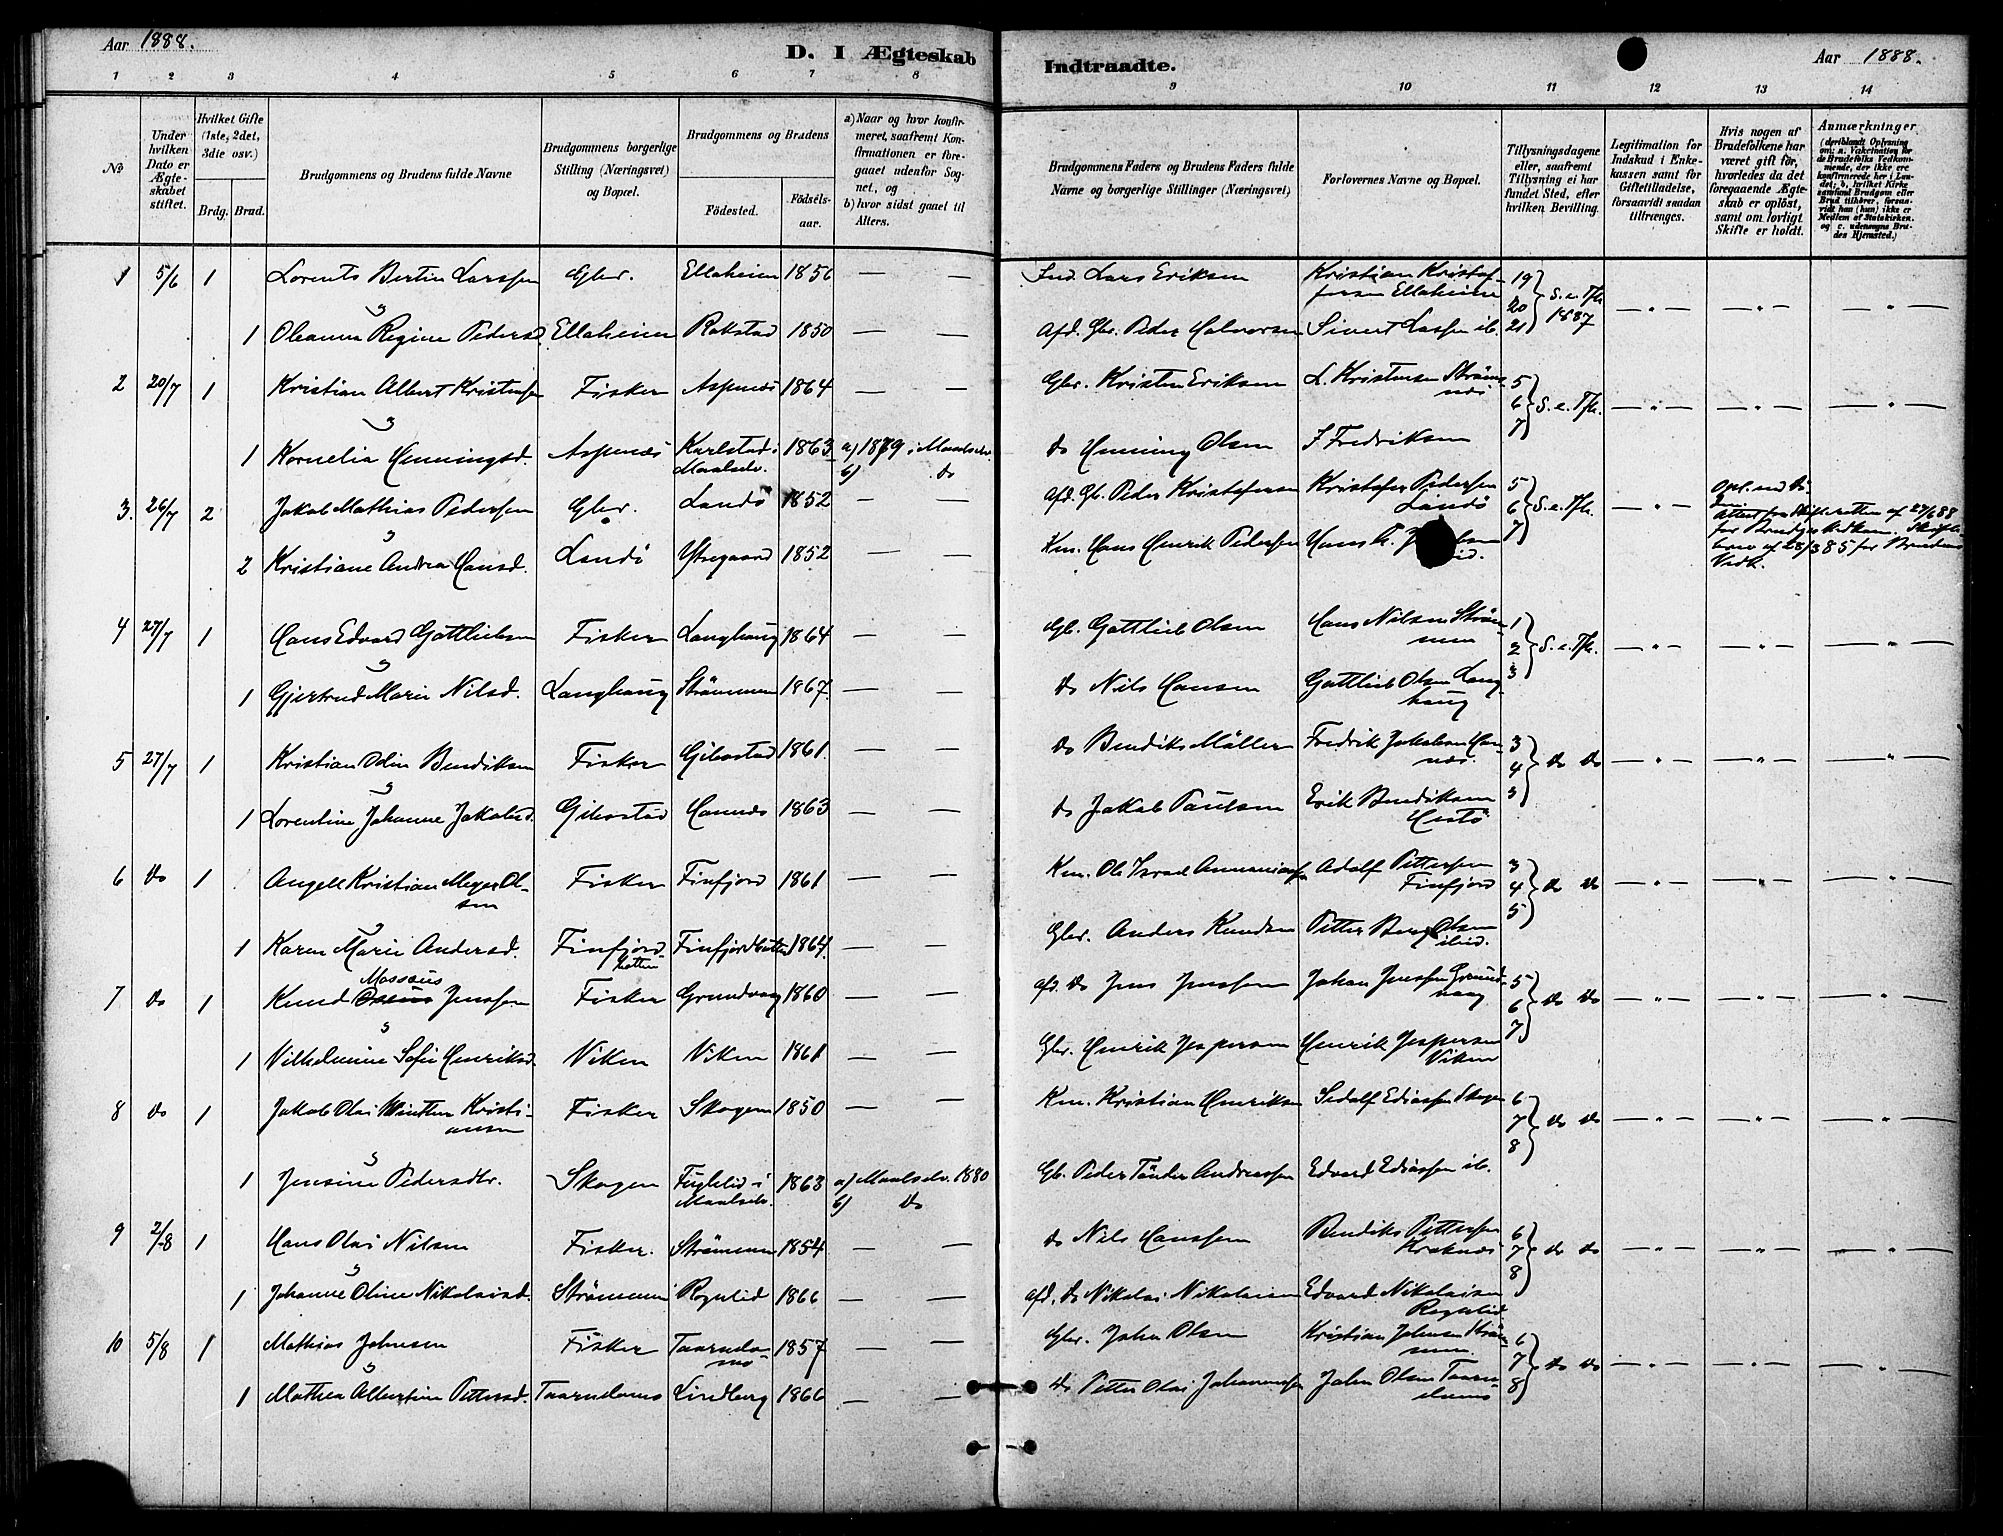 Aar 1888.
D. I Ægteskab Indtraadte.
Aar 1888.
1 2 3 4 5 6 7 8 9 10 11 12 13 14
No
Under hvilken Dato er Ægteskabet stiftet.
Hvilket Gifte (1ste, 2det, 3die osv.)
Brdg. Brud.
Brudgommens og Brudens fulde Navne
Brudgommens borgerlige Stilling (Næringsvei) og Bopæl.
Brudgommens og Brudens
Födested.
Födselsaar.
a) Naar og hvor konfirmeret, saafremt Konfirmationen er foregaaet udenfor Sognet, og
b) hvor sidst gaaet til Alters.
Brudgommens Faders og Brudens Faders fulde Navne og borgerlige Stillinger (Næringsvei)
Forlovernes Navne og Bopæl.
Tillysningsdagene eller, saafremt Tillysning ei har fundet Sted, efter hvilken Bevilling.
Legitimation for Indskud i Enkekassen samt for Giftetilladelse, forsaavidt saadan tiltrænges.
Hvis nogen af Brudefolkene har været gift för, hvorledes da det foregaaende Ægteskab er oplöst, samt om lovligt Skifte er holdt.
Anmærkninger
(deriblandt Oplysning om: a. Vakcination for de Brudefolks Vedkommende, der ikke ere konfirmerede her i Landet; b. hvilket Kirkesamfund Brudgom eller Brud tilhörer, forsaavidt han (hun) ikke er Medlem af Statskirken, og c. udensogns Brudes Hjemsted.)
1 5/6 1 Lorents Bertin Larssen Gbr. Ellaheien 1856 — — Ind. Lars Eriksen Kristian Kristoffersen Ellaheien 19 20 21 S. e. Tfk. 1887
1 Oleanna Regine Pedersd. Ellaheien Rakstad 1850 — — Afd. Gbr. Peder Halvorsen Sivert Larsen ib.
2 20/7 1 Kristian Albert Kristensen Fisker Aspenæs 1864 — — Gbr. Kristen Eriksen L. Kristensen Strømnæs 5 6 7 S. e. Tfk.
1 Kornelia Henningsd. Aspenæs Karlstad i Maalselv. 1863 a) 1879 i Maalselv. b) do do Henning Olsen J Fredriksen
3. 26/7 2 Jakob Mathias Pedersen Gbr. Landö 1852 — — Afd. Gb. Peder Kristofersen Kristofer Pedersen Landö 5 6 7 S. e. Tfk.
af 27/6 88
af 28/3 85 for Brudens Vedk.
2 Kristiane Andrea Hansd. Landö Ytregaard 1852 — — Km. Hans Henrik Pedersen
4 27/7 1 Hans Edvard Gottliebsen Fisker Langhaug 1864 — — Gb. Gottlieb Olsen Hans Nilsen Strømmen 1 2 3 S. e. Tfk.
1 Gjertrud Marie Nilsd. Langhaug Strømmen 1867 — — do Nils Hansen Gottlieb Olsen Langhaug
5 27/7 1 Kristian Odin Bendiksen Fisker Gibostad 1861. — — do Bendiks Müller Fredrik Jakobsen Hannæs. 3 4 5 do do
1 Lorentine Johanne Jakobsd. Gibostad Hannæs 1863 — — do Jakob Paulsen Erik Bendiksen
6 do 1 Angell Kristian Meyer Olsen Fisker Finfjord 1861 — — Km. Ole Israel Annaniassen Adolf Pettersen Finfjord 3 4 5 do do
1 Karen Marie Andersd. Finfjordbotten Finfjordbotten 1864. — — Gbr. Anders Knudsen Petter Berg Olsen ibid.
7 do 1 Knud Massæus Jenssen Fisker Grundvaag 1860 — — afd. do Jens Jenssen Johan Jenssen Grundvaag 5 6 7 do do
1 Vilhelmine Sofie Henriksd. Viken Viken 1861 — — Gbr. Henrik Jespersen Henrik Jespersen Viken
8 do 1 Jakob Olai Winther Kristiansen Fisker Skogen 1850 — — Km. Kristian Henriksen Sedolf Ediassen Skogen 6 7 8 do do
1 Jensine Pedersdtr. Skogen Fuglelid i Maalselv. 1863 a) Maalselv. 1880 b) do Gb. Peder Tønder Andreassen Edvard Ediassen ib.
9 2/8 1 Hans Olai Nilsen Fisker. Strømmen 1854 — — do Nils Hanssen Bendiks Pettersen Kraknæs 6 7 8 do do
1 Johanne Oline Nikolaisd. Strømmen Rognlid 1866 — — afd. do Nikolai Nikolaisen Edvard Nikolaisen Rognlid
10 5/8 1 Mathias Johnsen Fisker Taarndomo 1857 — — Gbr. John Olsen Kristian Johnsen Strømmen. 6 7 8 do do
1 Mathea Albertine Pettersd. Taarndomo Lindberg 1866 — — do Petter Olai Johannessen John Olsen